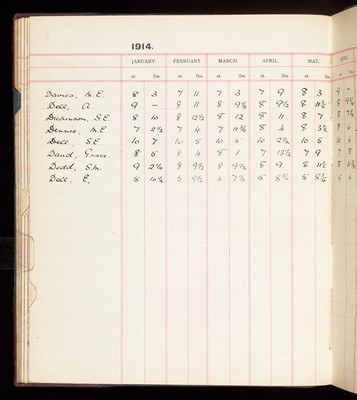 1914.
JANUARY. FEBRUARY MARCH. APRIL. MAY. JUNE
st. lbs. st. lbs. st. lbs. st. lbs. st. lbs. st.
Davies, M.E. 8 3 7 11 7 3 7 9 8 3 8 -
Dell, A. 9 - 8 11 8 9¾ 8 9½ 8 11½ 8
Dickinson, S.E. 8 10 8 12½ 8 12 8 11 8 7 8
Dennis, M.E. 7 2½ 7 4 7 11¾ 8 4 8 3½ 8 6
Dell, S.E. 10 7 10 5 10 5 10 2½ 10 5 10 6
Daud, Grace. 8 5 8 4 8 1 7 13½ 7 9 7 8
Dodd, S.M. 9 2¼ 8 9½ 8 9½ 8 9 8 11½ 8
Dell, E. 5 10¼ 5 9½ 6 7½ 5 8¾ 5 8½ 6 6